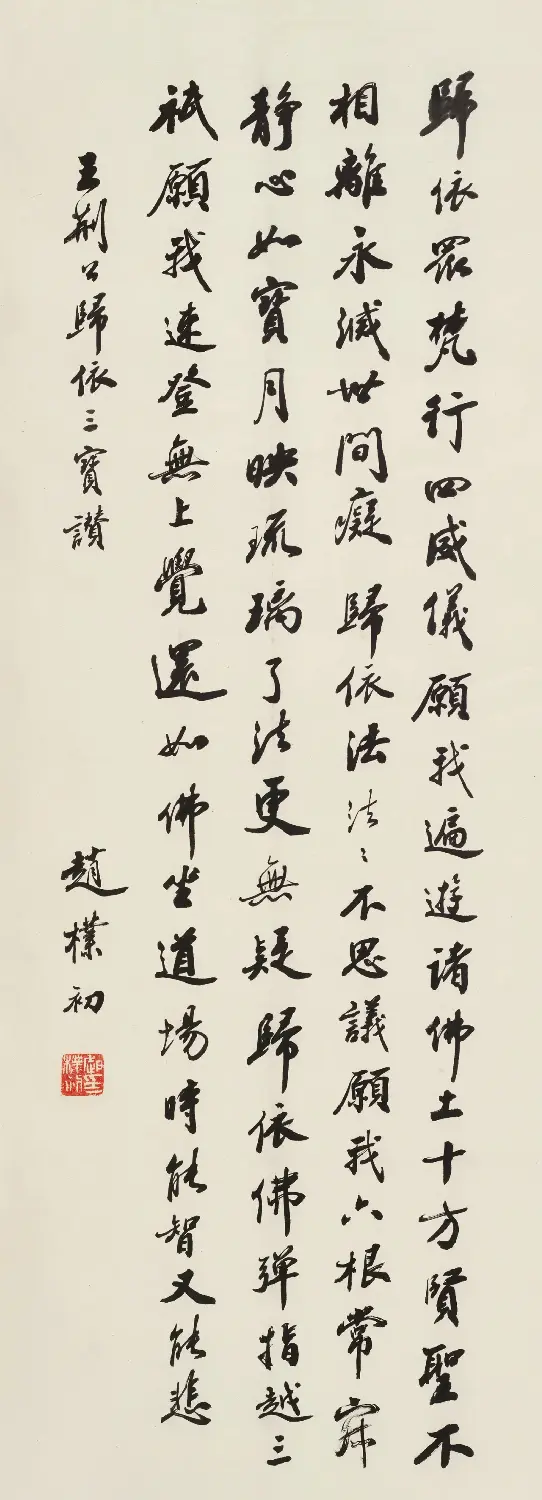 歸依眾梵行四威儀願我遍遊諸佛土十方賢聖不
相離永滅世間癡歸依法法〻不思議願我六根常寂
靜心如寶月映琉璃了法更無疑歸依佛彈指越三
祇願我速登無上覺還如佛坐道場時能智又能悲
王荊公歸依三寶讚
趙樸初
趙樸初